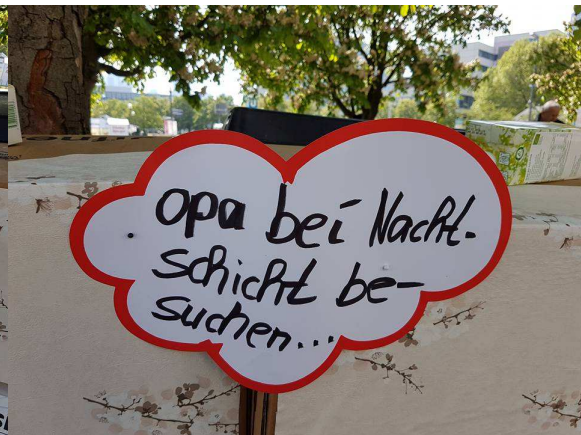 Opa bei Nacht-
schicht be-
suchen...